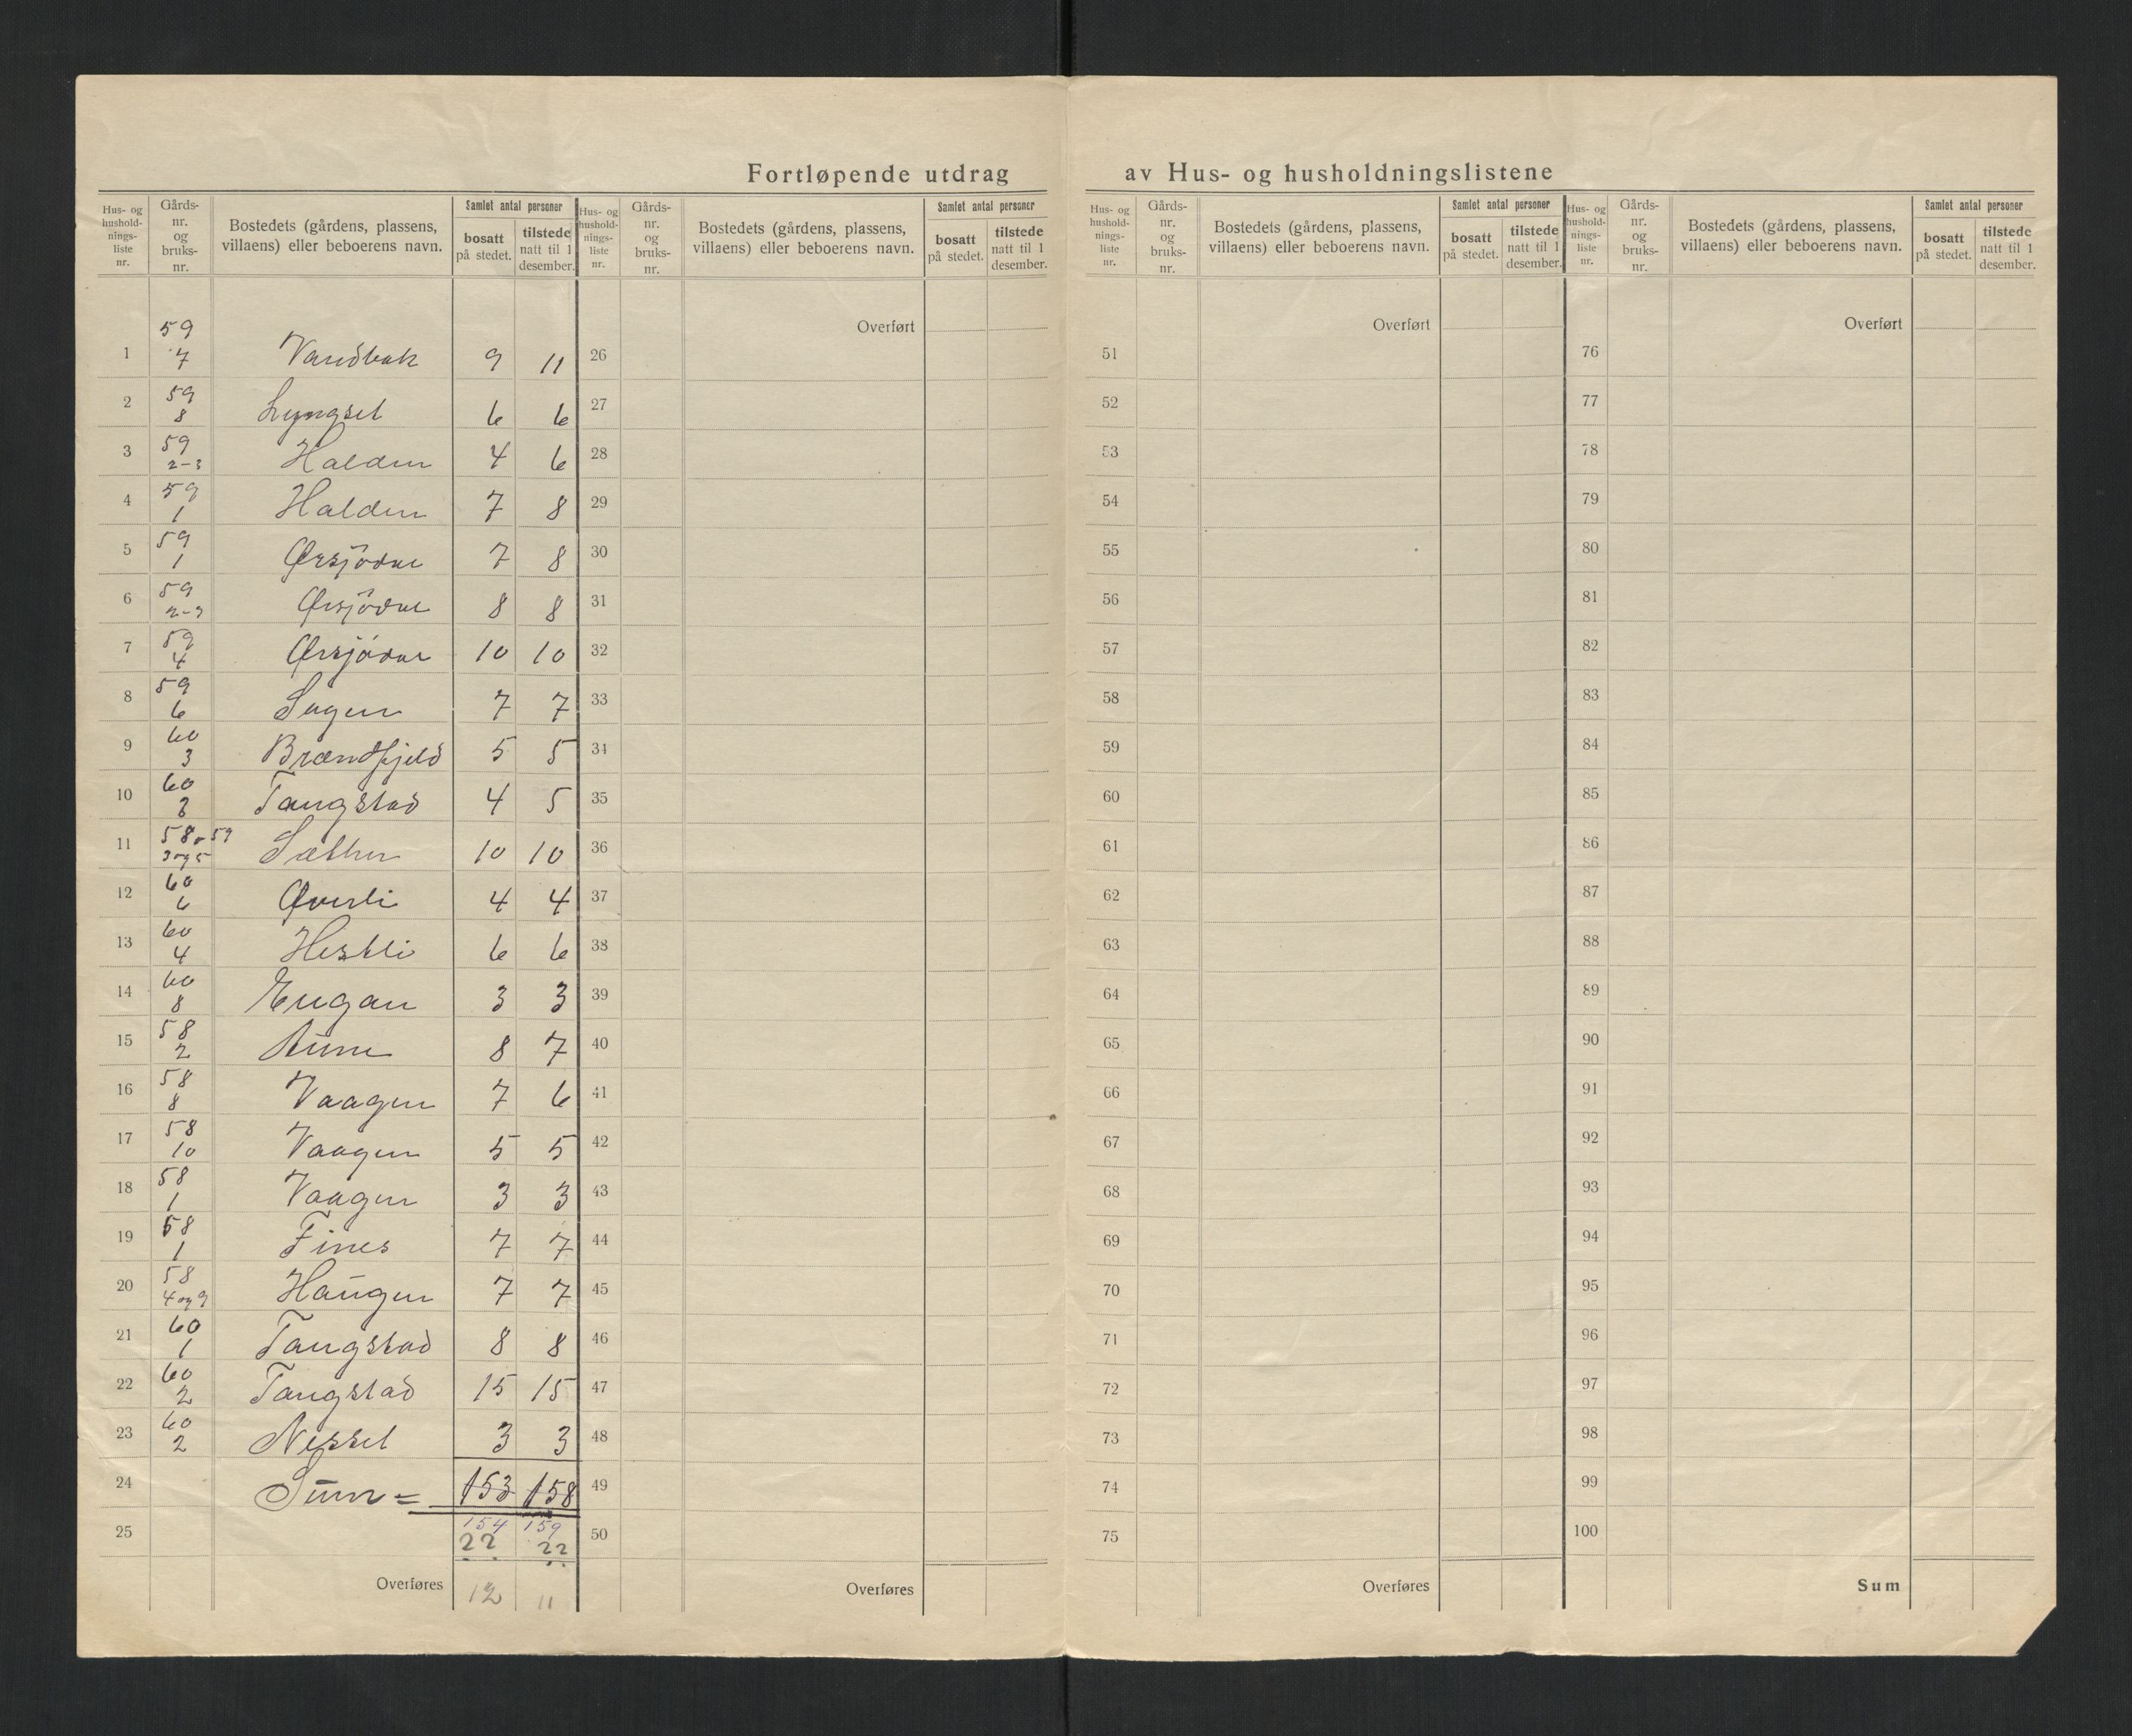 Fortløpende utdrag av Hus- og husholdningslistene
Hus- og hushold- nings- liste nr. | Gårds- nr. og bruks- nr. | Bostedets (gårdens, plassens, villaens) eller beboerens navn. | Samlet antal personer | bosatt på stedet. | tilstede natt til 1 desember.
1 59 7 Vandbak 9 11
2 59 8 Lyngset 6 6
3 59 2-3 Halden 4 6
4 59 1 Halden 7 8
5 59 1 Ørsjødne 7 8
6 59 2-3 Ørsjødne 8 8
7 59 4 Ørsjødne 10 10
8 59 6 Sagen 7 7
9 60 3 Brændfjeld 5 5
10 60 Tangstad 4 5
11 58 o 59 3 og 5 Sæther 10 10
12 60 6 Øverli 4 4
13 60 4 Hestli 6 6
14 60 8 Engan 3 3
15 58 2 Aune 8 7
16 58 8 Vaagen 7 6
17 58 10 Vaagen 5 5
18 58 1 Vaagen 3 3
19 58 1 Fines 7 7
20 58 4 og 9 Haugen 7 7
21 60 1 Tangstad 8 8
22 60 2 Tangstad 15 15
23 60 2 Nesset 3 3
24 Sum = 153 158
154 159
25 22 22
Overføres 12 11
Hus- og hushold- nings- liste nr. | Gårds- nr. og bruks- nr. | Bostedets (gårdens, plassens, villaens) eller beboerens navn. | Samlet antal personer | bosatt på stedet. | tilstede natt til 1 desember.
Overført
26
27
28
29
30
31
32
33
34
35
36
37
38
39
40
41
42
43
44
45
46
47
48
49
50
Overføres
Hus- og hushold- nings- liste nr. | Gårds- nr. og bruks- nr. | Bostedets (gårdens, plassens, villaens) eller beboerens navn. | Samlet antal personer | bosatt på stedet. | tilstede natt til 1 desember.
Overført
51
52
53
54
55
56
57
58
59
60
61
62
63
64
65
66
67
68
69
70
71
72
73
74
75
Overføres
Hus- og hushold- nings- liste nr. | Gårds- nr. og bruks- nr. | Bostedets (gårdens, plassens, villaens) eller beboerens navn. | Samlet antal personer | bosatt på stedet. | tilstede natt til 1 desember.
Overført
76
77
78
79
80
81
82
83
84
85
86
87
88
89
90
91
92
93
94
95
96
97
98
99
100
Sum